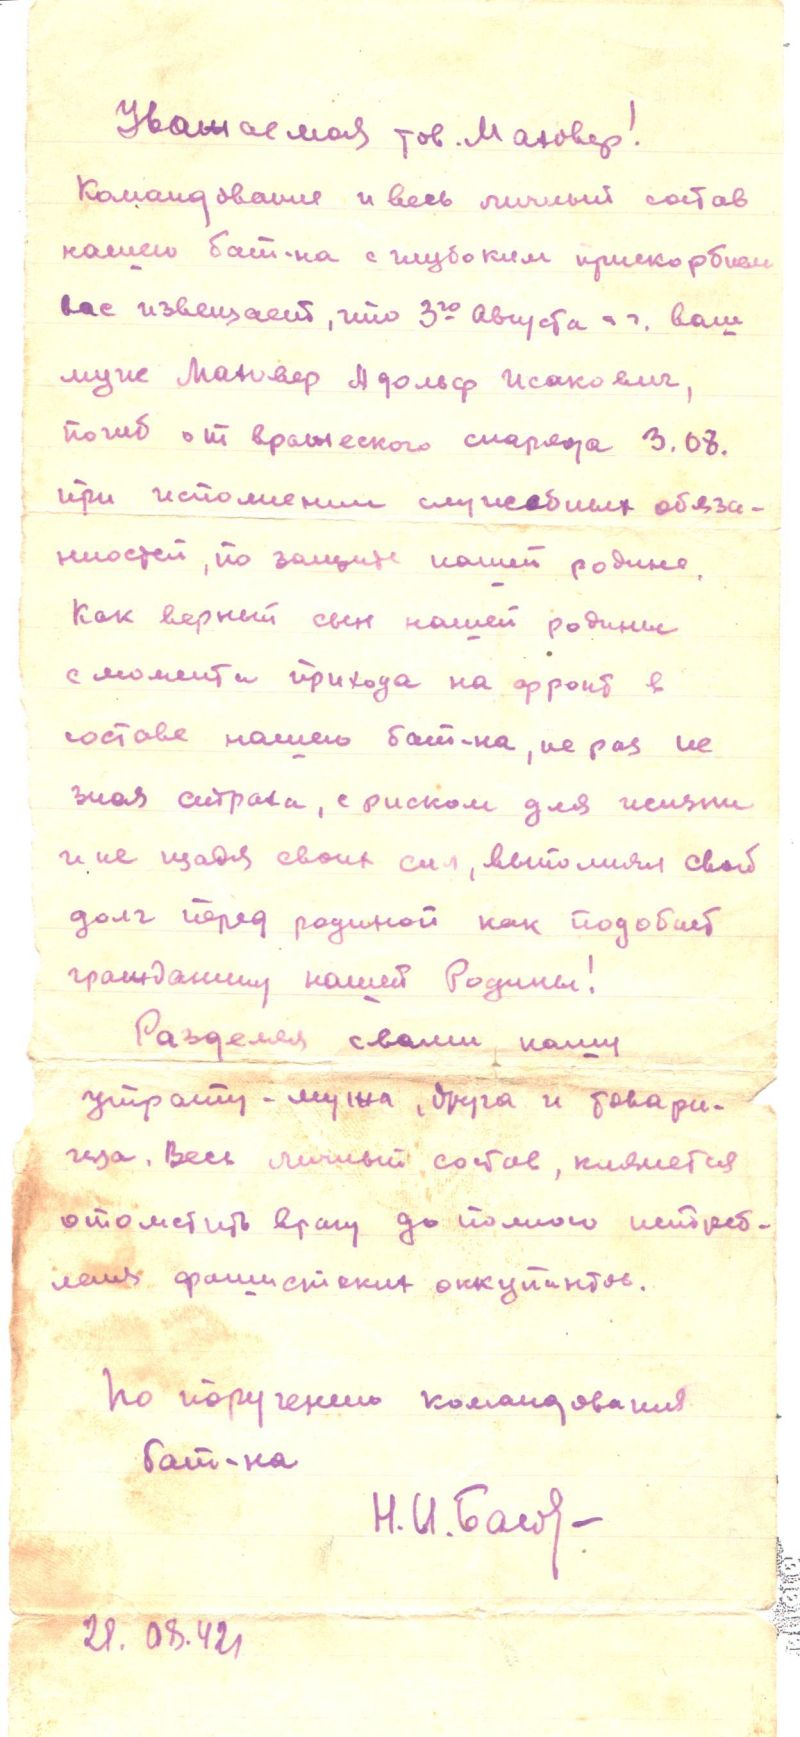 Уважаемая тов. Маховер!
Командование и весь личный состав
нашего бат-на с глубоким прискорбием
вас извещает, что 3го Августа с.г. ваш
муж Маховер Адольф Исакович,
погиб от вражеского снаряда 3.08.
при исполнении служебных обяза-
нностей, по защите нашей родине.
Как верный сын нашей родины
с момента прихода на фронт в
составе нашего бат-на, не раз не
зная страха, с риском для жизни
и не щадя своих сил, выполнял свой
долг перед родиной как подобает
гражданину нашей Родины!
Разделяя с вами нашу
утрату - мужа, друга и товари-
ща. Весь личный состав, клянется
отомстить врагу до полного истреб-
ления фашистских оккупантов.
По поручению командования
бат-на
Н.И.
08.42г